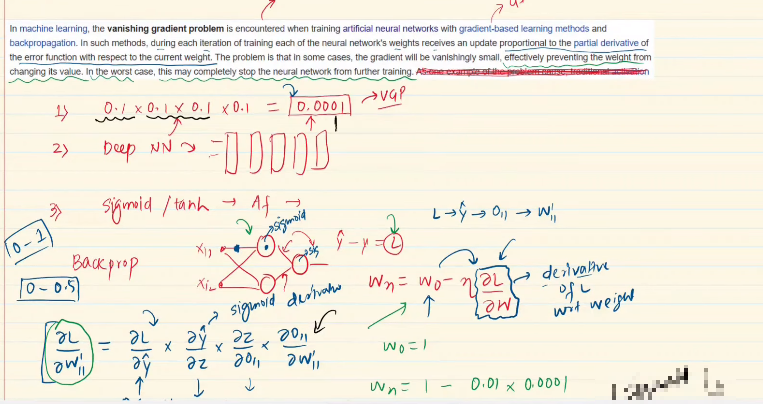 In machine learning, the vanishing gradient problem is encountered when training artificial neural networks with gradient-based learning methods and
backpropagation. In such methods, during each iteration of training each of the neural network's weights receives an update proportional to the partial derivative of
the error function with respect to the current weight. The problem is that in some cases, the gradient will be vanishingly small, effectively preventing the weight from
changing its value. In the worst case, this may completely stop the neural network from further training. As one example of the problem cause, traditional activation
1) 0.1 × 0.1 × 0.1 × 0.1 = 0.0001 → VGP
2) Deep NN →
3) Sigmoid / tanh → Af →
L → ŷ → O₁₁ → W¹₁₁
0 - 1
sigmoid
Backprop
xi1
xi2
sig
ŷ - y = L
0 - 0.5
Wn = W0 - η ∂L/∂W → derivative of L wrt weight
sigmoid derivative
∂L/∂W¹₁₁ = ∂L/∂ŷ × ∂ŷ/∂z × ∂z/∂O₁₁ × ∂O₁₁/∂W¹₁₁
W0 = 1
Wn = 1 - 0.01 × 0.0001